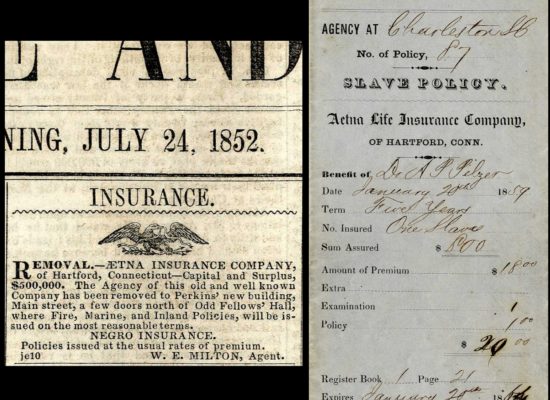 E AND
NING, JULY 24, 1852.
INSURANCE.
REMOVAL.—ÆTNA INSURANCE COMPANY,
of Hartford, Connecticut—Capital and Surplus,
$500,000. The Agency of this old and well known
Company has been removed to Perkins' new building,
Main street, a few doors north of Odd Fellows' Hall,
where Fire, Marine, and Inland Policies, will be is-
sued on the most reasonable terms.
NEGRO INSURANCE.
Policies issued at the usual rates of premium.
je10 W. E. MILTON, Agent.
AGENCY AT Charleston SC
No. of Policy, 87
SLAVE POLICY.
Aetna Life Insurance Company,
OF HARTFORD, CONN.
Benefit of Dr A P Pelzer
Date January 20th 1859
Term Five Years
No. Insured One Slave
Sum Assured $800
Amount of Premium $18.00
Extra
Examination 1
Policy 1.00
$ 20.00
Register Book 1 Page 21
Expires January 20th 18